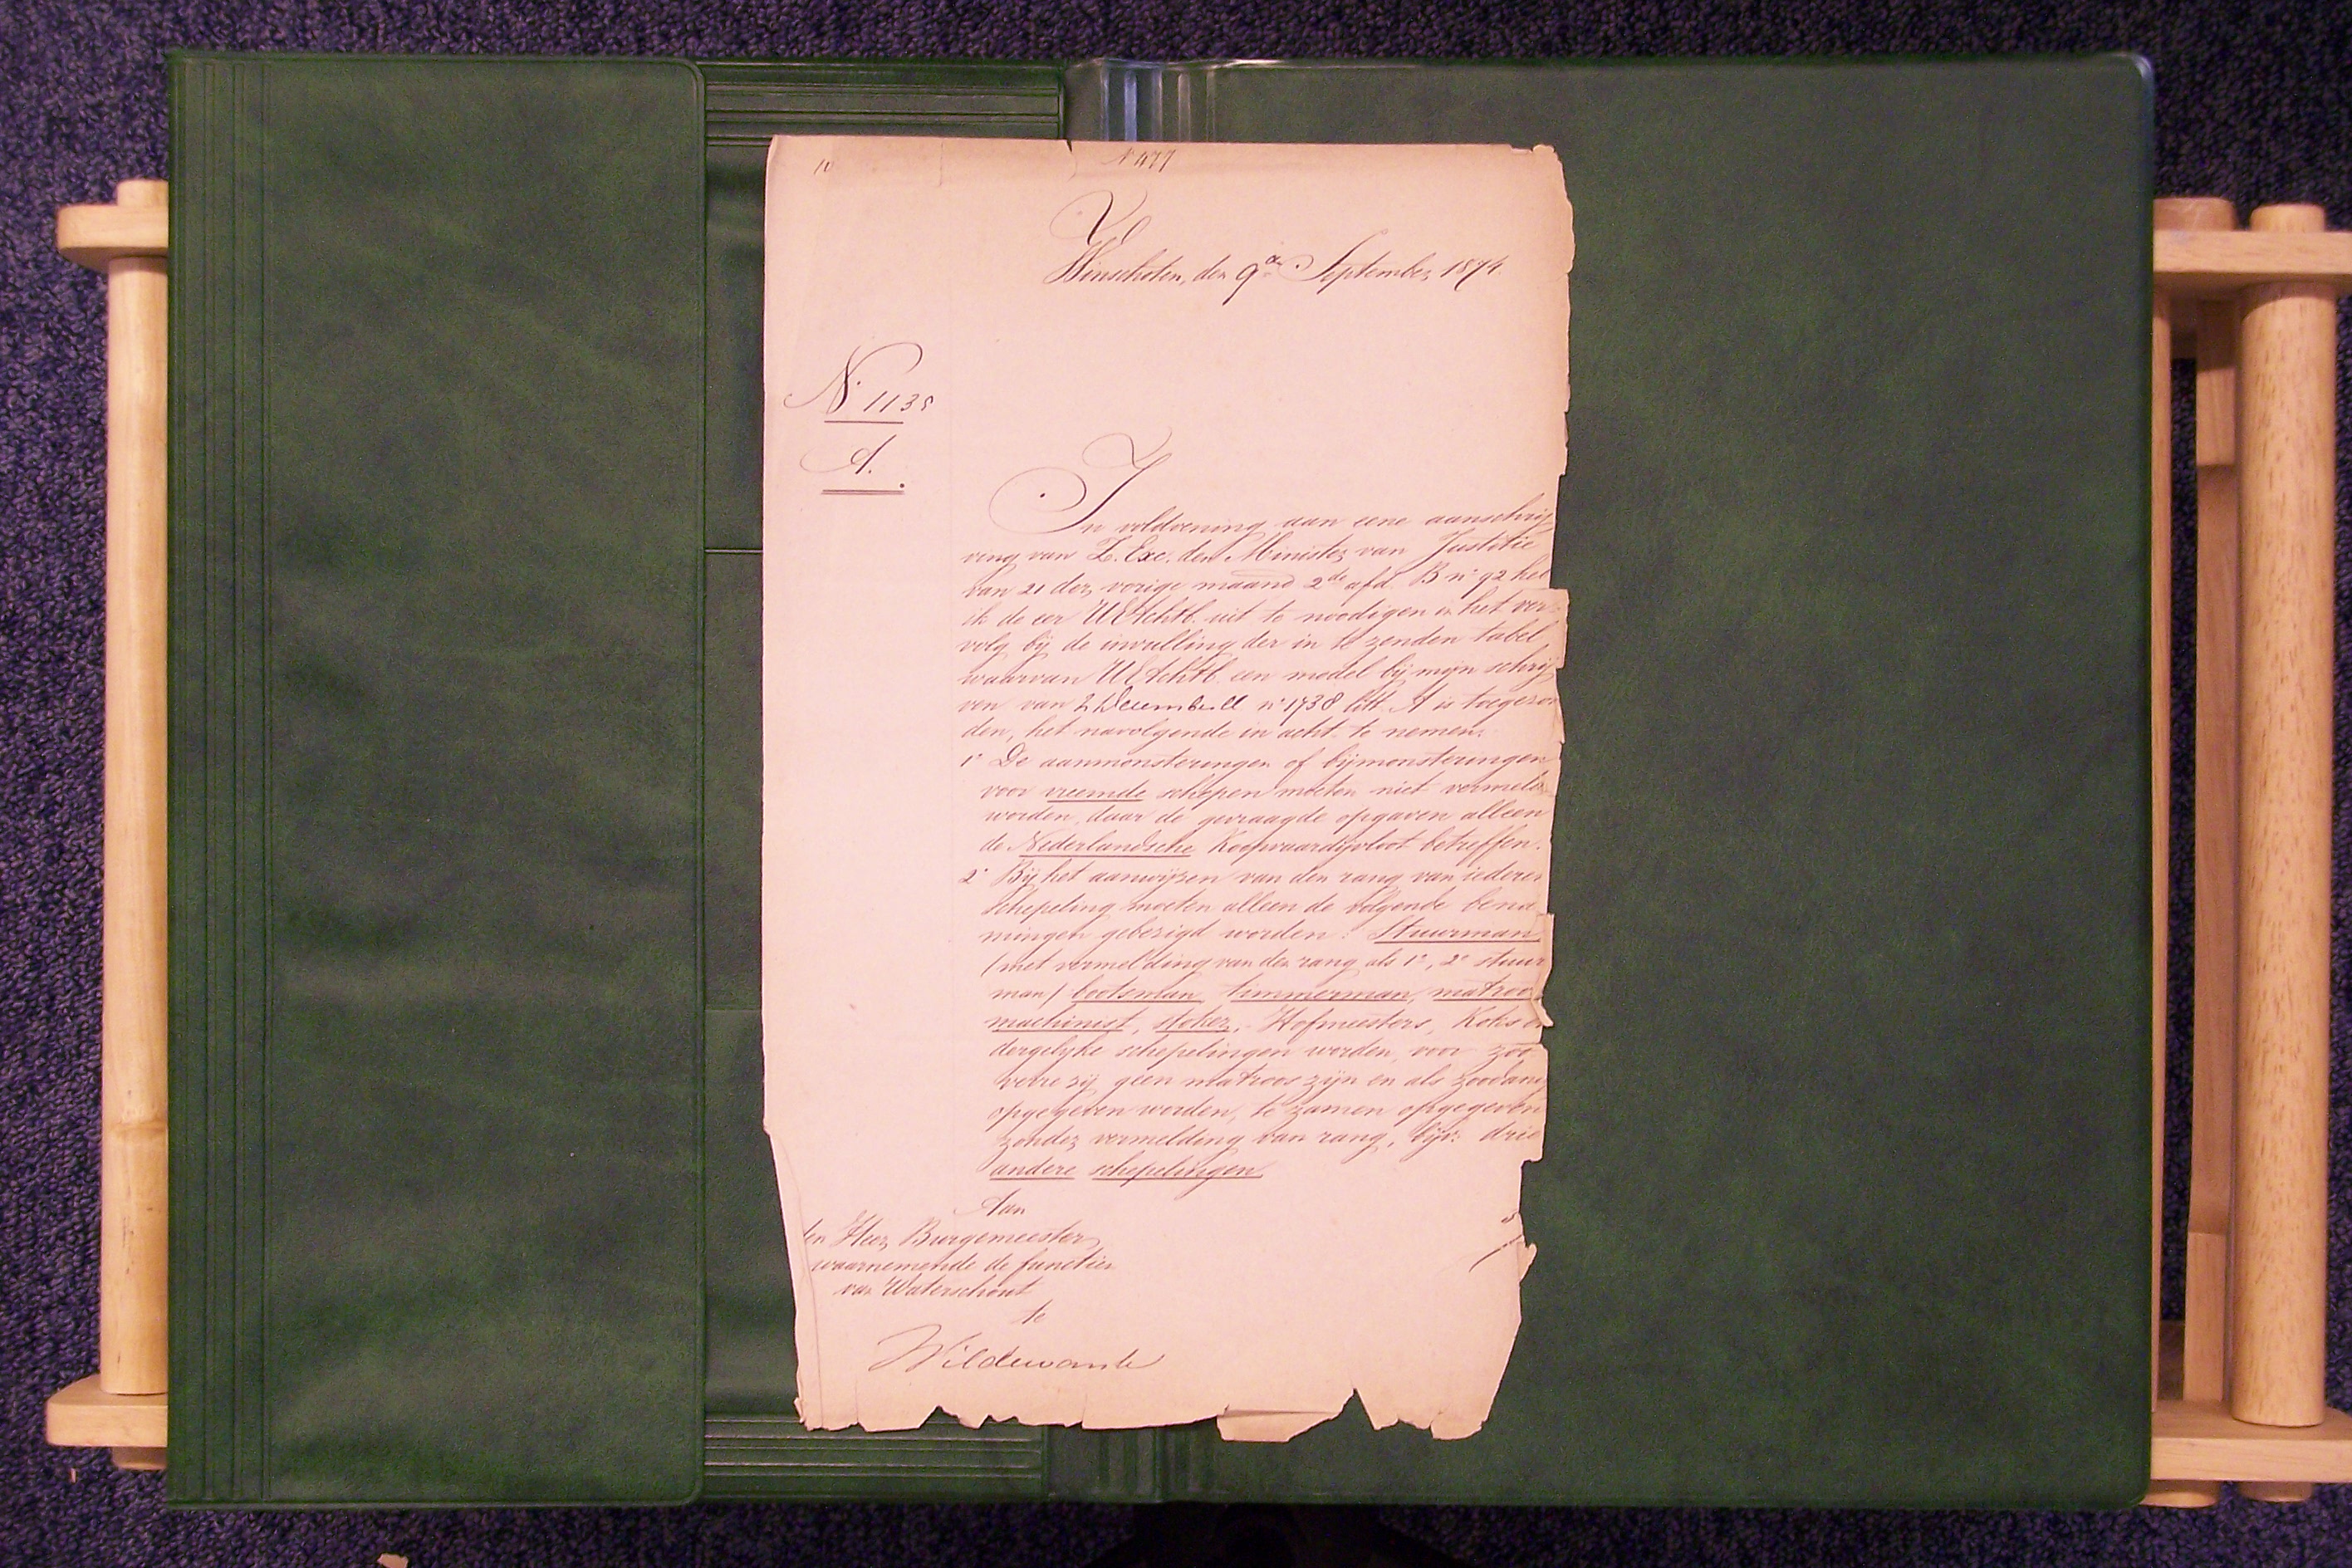 10
N 477
Winschoten, den 9den September 1874.
N. 1138
A.
In voldoening aan eene aanschrij
ving van Z. Exc. den Minister van Justitie
van 21 der vorige maand 2de afd. B no 92 heb
ik de eer UEAchtb. uit te noodigen in het ver-
volg bij de invulling der in te zenden tabel
waarvan UEAchtb. een model bij mijn schrij
ven van 2 December ll no 1738 litt. A is toegezon
den, het navolgende in acht te nemen.
1o De aanmonsteringen of bijmonsteringen
voor vreemde schepen moeten niet vermeld
worden, daar de gevraagde opgaven alleen
de Nederlandsche Koopvaardijvloot betreffen.
2o Bij het aanwijzen van den rang van iederen
schepeling moeten alleen de volgende bena
mingen gebezigd worden: Stuurman
(met vermelding van den rang als 1e, 2e stuur
man) bootsman, timmerman, matroos
machinist, stoker, Hofmeesters, Koks en
dergelijke schepelingen worden, voor zoo
verre zij geen matroos zijn en als zoodanig
opgegeven worden, te zamen opgegeven
zonder vermelding van rang, bijv: drie
andere schepelingen.
Aan
den Heer Burgemeester
waarnemende de functien
van Waterschout
te
Wildervank